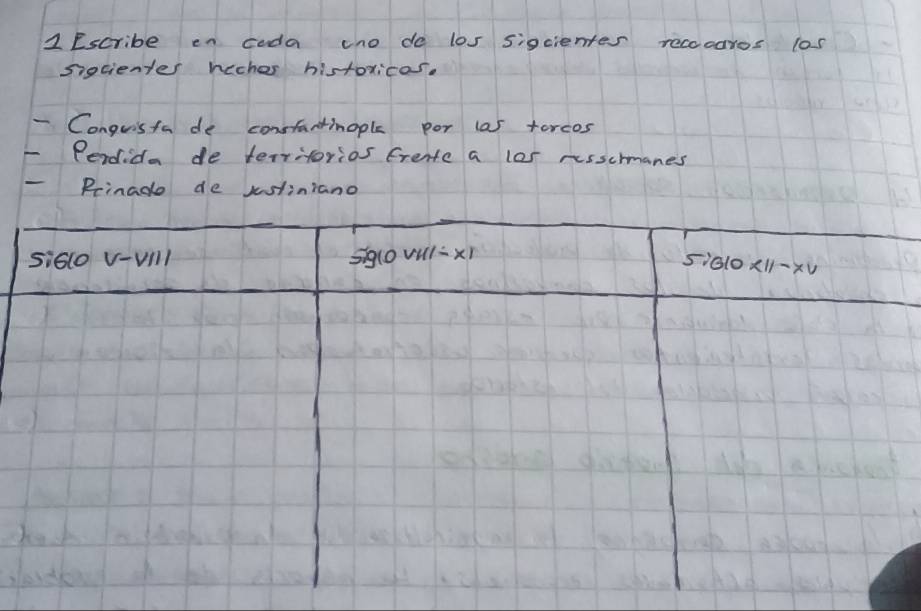 1 Escribe en cada uno de los sigcientes reccoaros los
sigcientes hechos historicos.
- Conquista de constantinopla por las torcos
- Perdida de territorios frente a los
- Reinado de Justiniano
SiGlO V-VIII
Siglo VIII-XI
SiGlO XII-XV